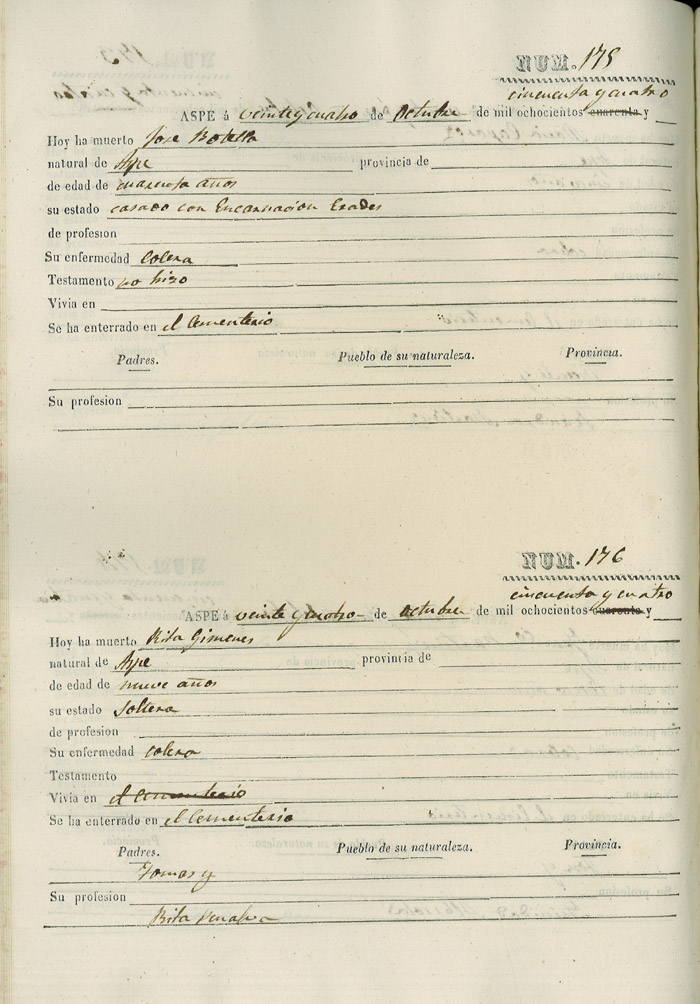 NUM. 175
cincuenta y cuatro
ASPE á veinte y cuatro de Octubre de mil ochocientos cuarenta y
Hoy ha muerto Jose Botella
natural de Aspe provincia de
de edad de cuarenta años
su estado casado con Encarnacion Erades
de profesion
Su enfermedad Colera
Testamento no hizo
Vivia en
Se ha enterrado en el Cementerio
Padres. Pueblo de su naturaleza. Provincia.
Su profesion
NUM. 176
cincuenta y cuatro
ASPE á veinte y cuatro de Octubre de mil ochocientos cuarenta y
Hoy ha muerto Rita Gimenes
natural de Aspe provincia de
de edad de nueve años
su estado soltera
de profesion
Su enfermedad Colera
Testamento
Vivia en el Cementerio
Se ha enterrado en el Cementerio
Padres. Pueblo de su naturaleza. Provincia.
Tomas y
Su profesion
Rita